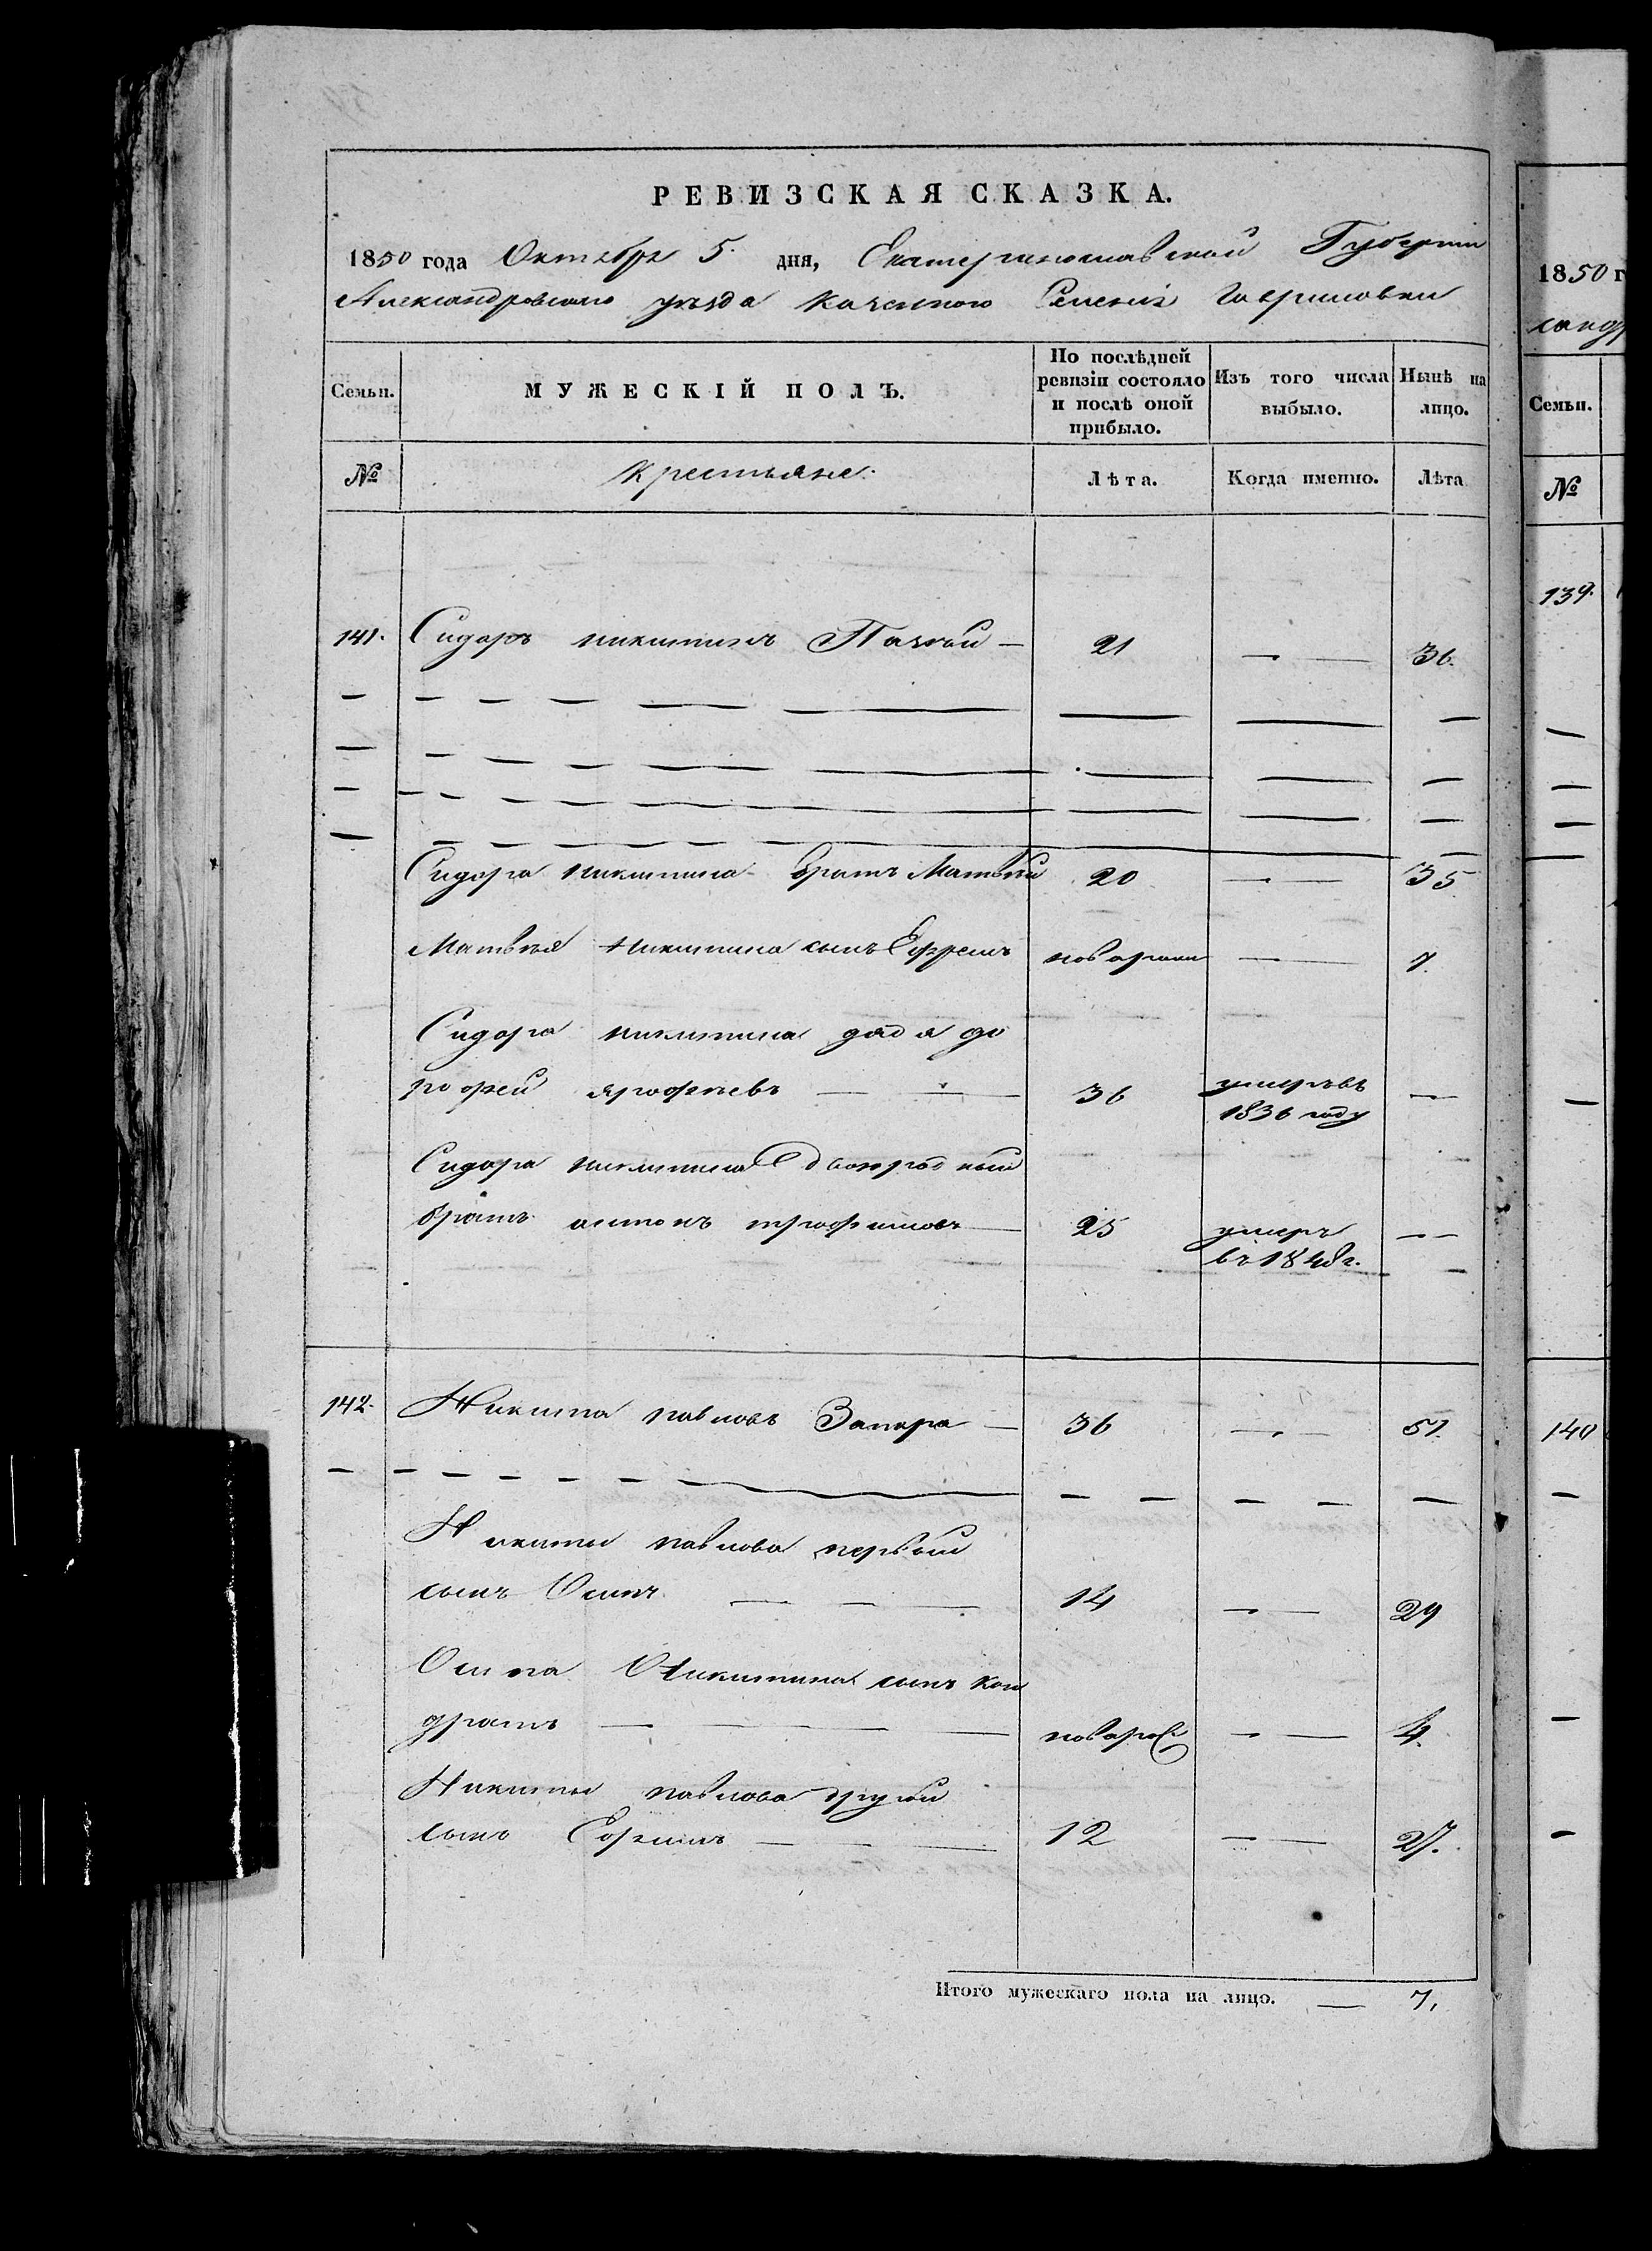 РЕВИЗСКАЯ СКАЗКА.
1850 года Октября 5. дня, Екатеринославской Губернии
Александровского уезда казенного Селения Гавриловки
Семьи. МУЖЕСКІЙ ПОЛЪ. По послѣдней ревизіи состояло и послѣ оной прибыло. Изъ того числа выбыло. Нынѣ на лицо.
№ Крестьяне. Лѣта. Когда именно. Лѣта
141. Сидоръ никитинъ 21 — 36.
Сидора никитина братъ Матвей 20 — 35
Матвея Никитина сынъ Ефремъ новорожд — 7.
Сидора никитина дядя до
рофей ярофѣевъ — 36 умеръ въ 1836 году —
Сидора никитина двоюродный
братъ антонъ трофимовъ 25 умеръ въ 1848 г. —
142. Никита павловъ Запара — 36 — 51.
Никиты павлова первый
сынъ Осипъ — 14 — 29
Осипа Никитина сынъ кон
дратъ — новорож — 4.
Никиты павлова другой
сынъ Ефимъ — 12 — 27.
Итого мужескаго пола на лицо. — 7,
1850 г
Семьи.
№
139.
140